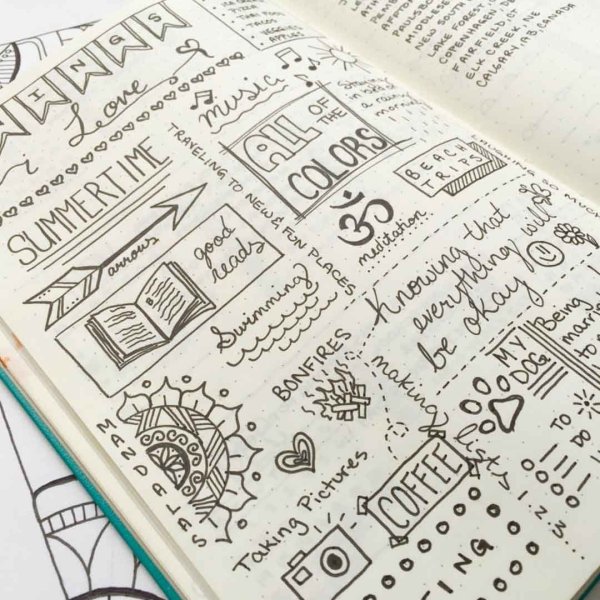 INGS
i Love
SUMMERTIME
arrows
good
reads
MANDALAS
music
ALL
OF
THE
COLORS
TRAVELING TO NEW & FUN PLACES
Swimming
BONFIRES
Taking Pictures
a rainy
morning
BEACH
TRIPS
ॐ
meditation
Knowing that
everything will
be okay
making
lists
1
2
3
MY
DOG
Being
married
to
TO
DO
COFFEE
TING
APPLES
NEW SOUTH
LAKE FOREST,
COPENHAGEN, DE
FAIRFIELD, CT
ELK CREEK, NE
CALGARY, AB, CANADA